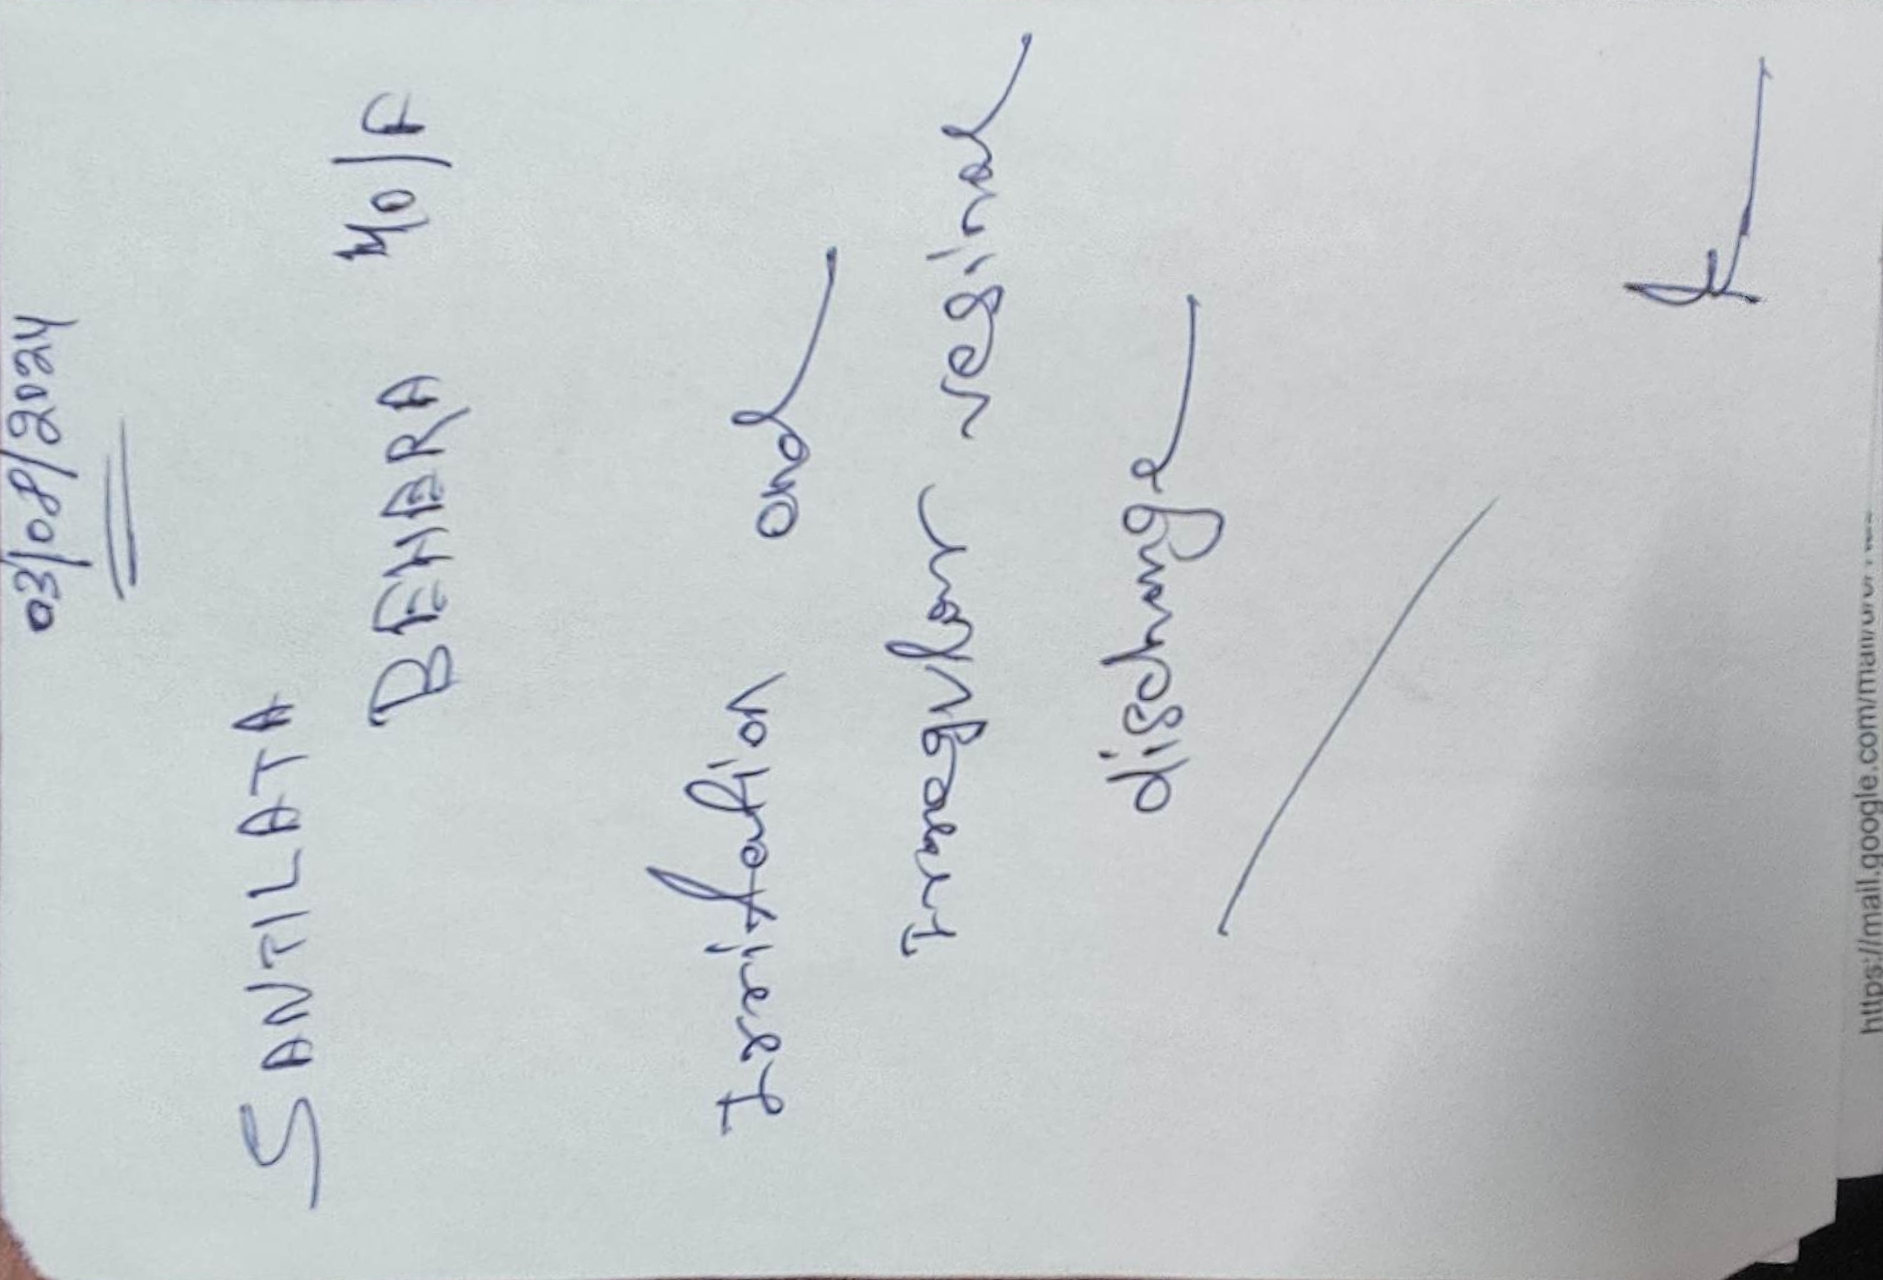 03/08/2024
SANTILATA
BEHERA 40/F
Irritation and
irregular vaginal
discharge
https://mail.google.com/mail/u/0/